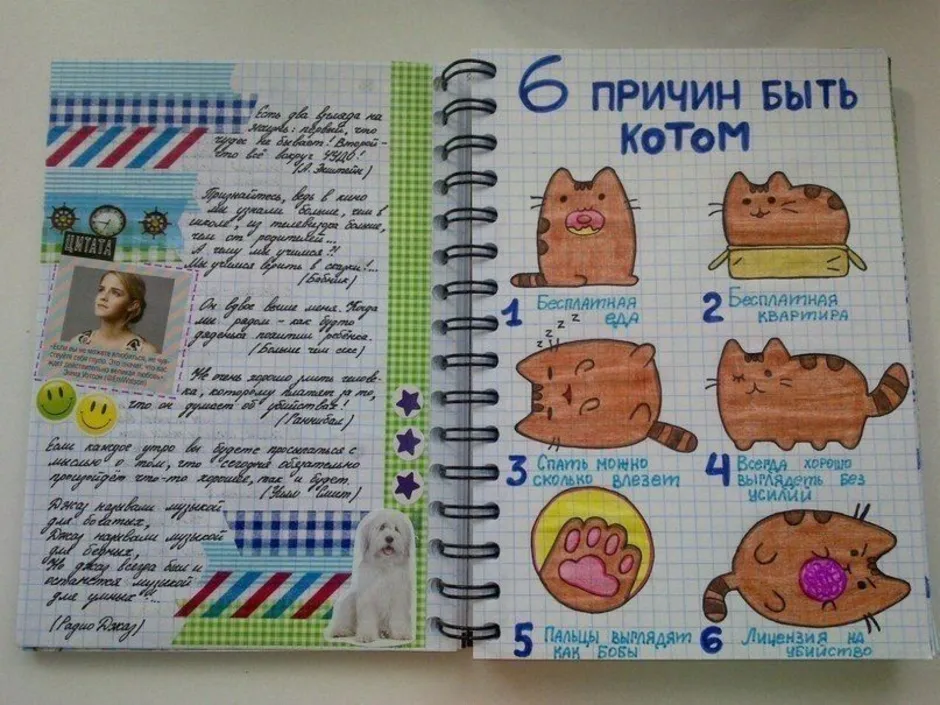 Есть два взгляда на
жизнь: первый, что
чудес не бывает! Второй -
что всё вокруг ЧУДО!
(А. Энштейн)
Признайтесь, ведь в кино
мы узнали больше, чем в
школе, из телевизора больше,
чем от родителей...
А чему мы учимся?!
Мы учимся верить в сказки!...
(Бобник)
ЦИТАТА
Он вдвое выше меня. Когда
мы рядом - как будто
дяденька похитил ребёнка.
(Больше чем секс)
«Если вы не можете влюбиться, не чув-
ствуйте себя глупо. Это значит, что вас
ждет действительно великая любовь»
Эмма Уотсон
Не очень хорошо злить челове-
ка, которому платят за то,
что он думает об убийствах!
(Ганнибал)
Если каждое утро вы будете просыпаться с
мыслью о том, что сегодня обязательно
произойдёт что-то хорошее, так и будет.
(Уилл Смит)
Джаз называли музыкой
для богатых,
Джаз называли музыкой
для бедных,
Но джаз всегда был и
останется музыкой
для умных!...
(Радио Джаз)
6 ПРИЧИН БЫТЬ
КОТОМ
1 Бесплатная
еда
2 Бесплатная
квартира
3 Спать можно
сколько влезет
4 Всегда хорошо
выглядеть без
усилий
5 Пальцы выглядят
как бобы
6 Лицензия на
убийство